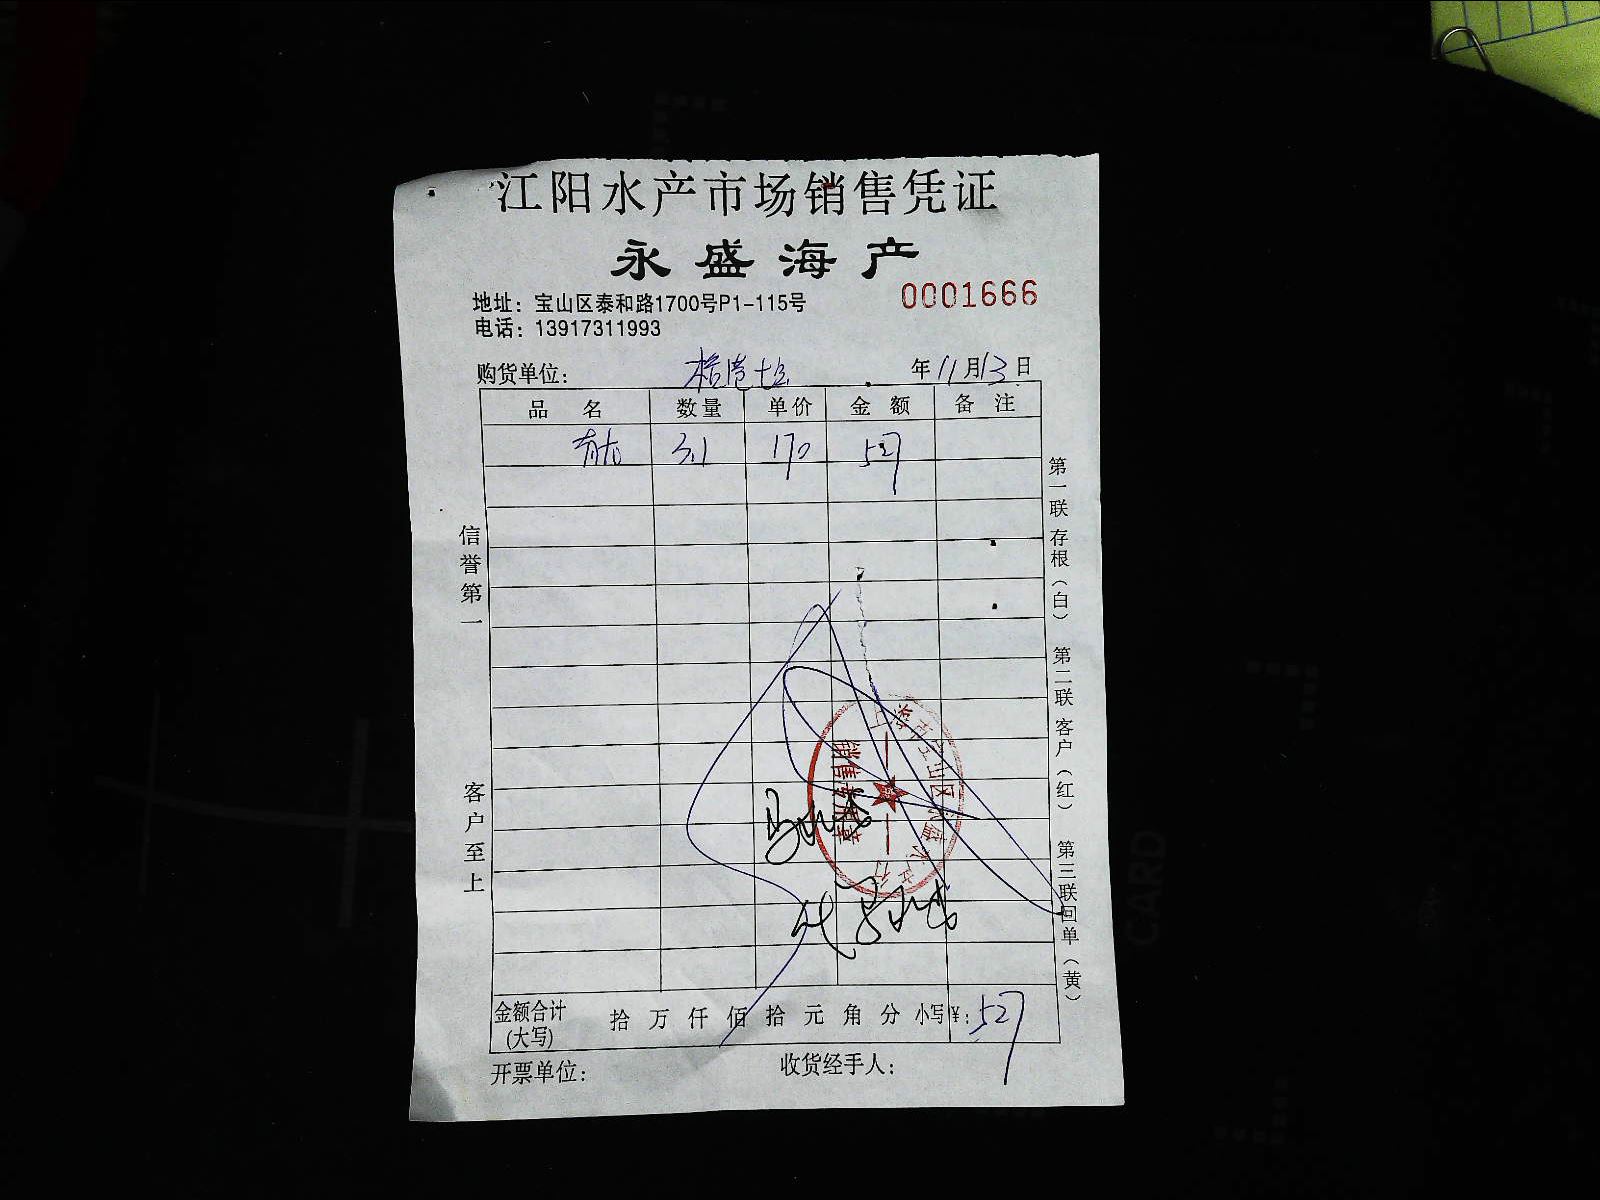 江阳水产市场销售凭证
永盛海产
0001666
地址：宝山区泰和路1700号P1-115号
电话：13917311993
购货单位： 年11月13日
品名 数量 单价 金额 备注
3.1 170 527
信誉第一 客户至上
第一联存根（白） 第二联客户（红） 第三联回单（黄）
销售专用章
金额合计(大写) 拾 万 仟 佰 拾 元 角 分 小写¥：527
开票单位： 收货经手人：
CARD